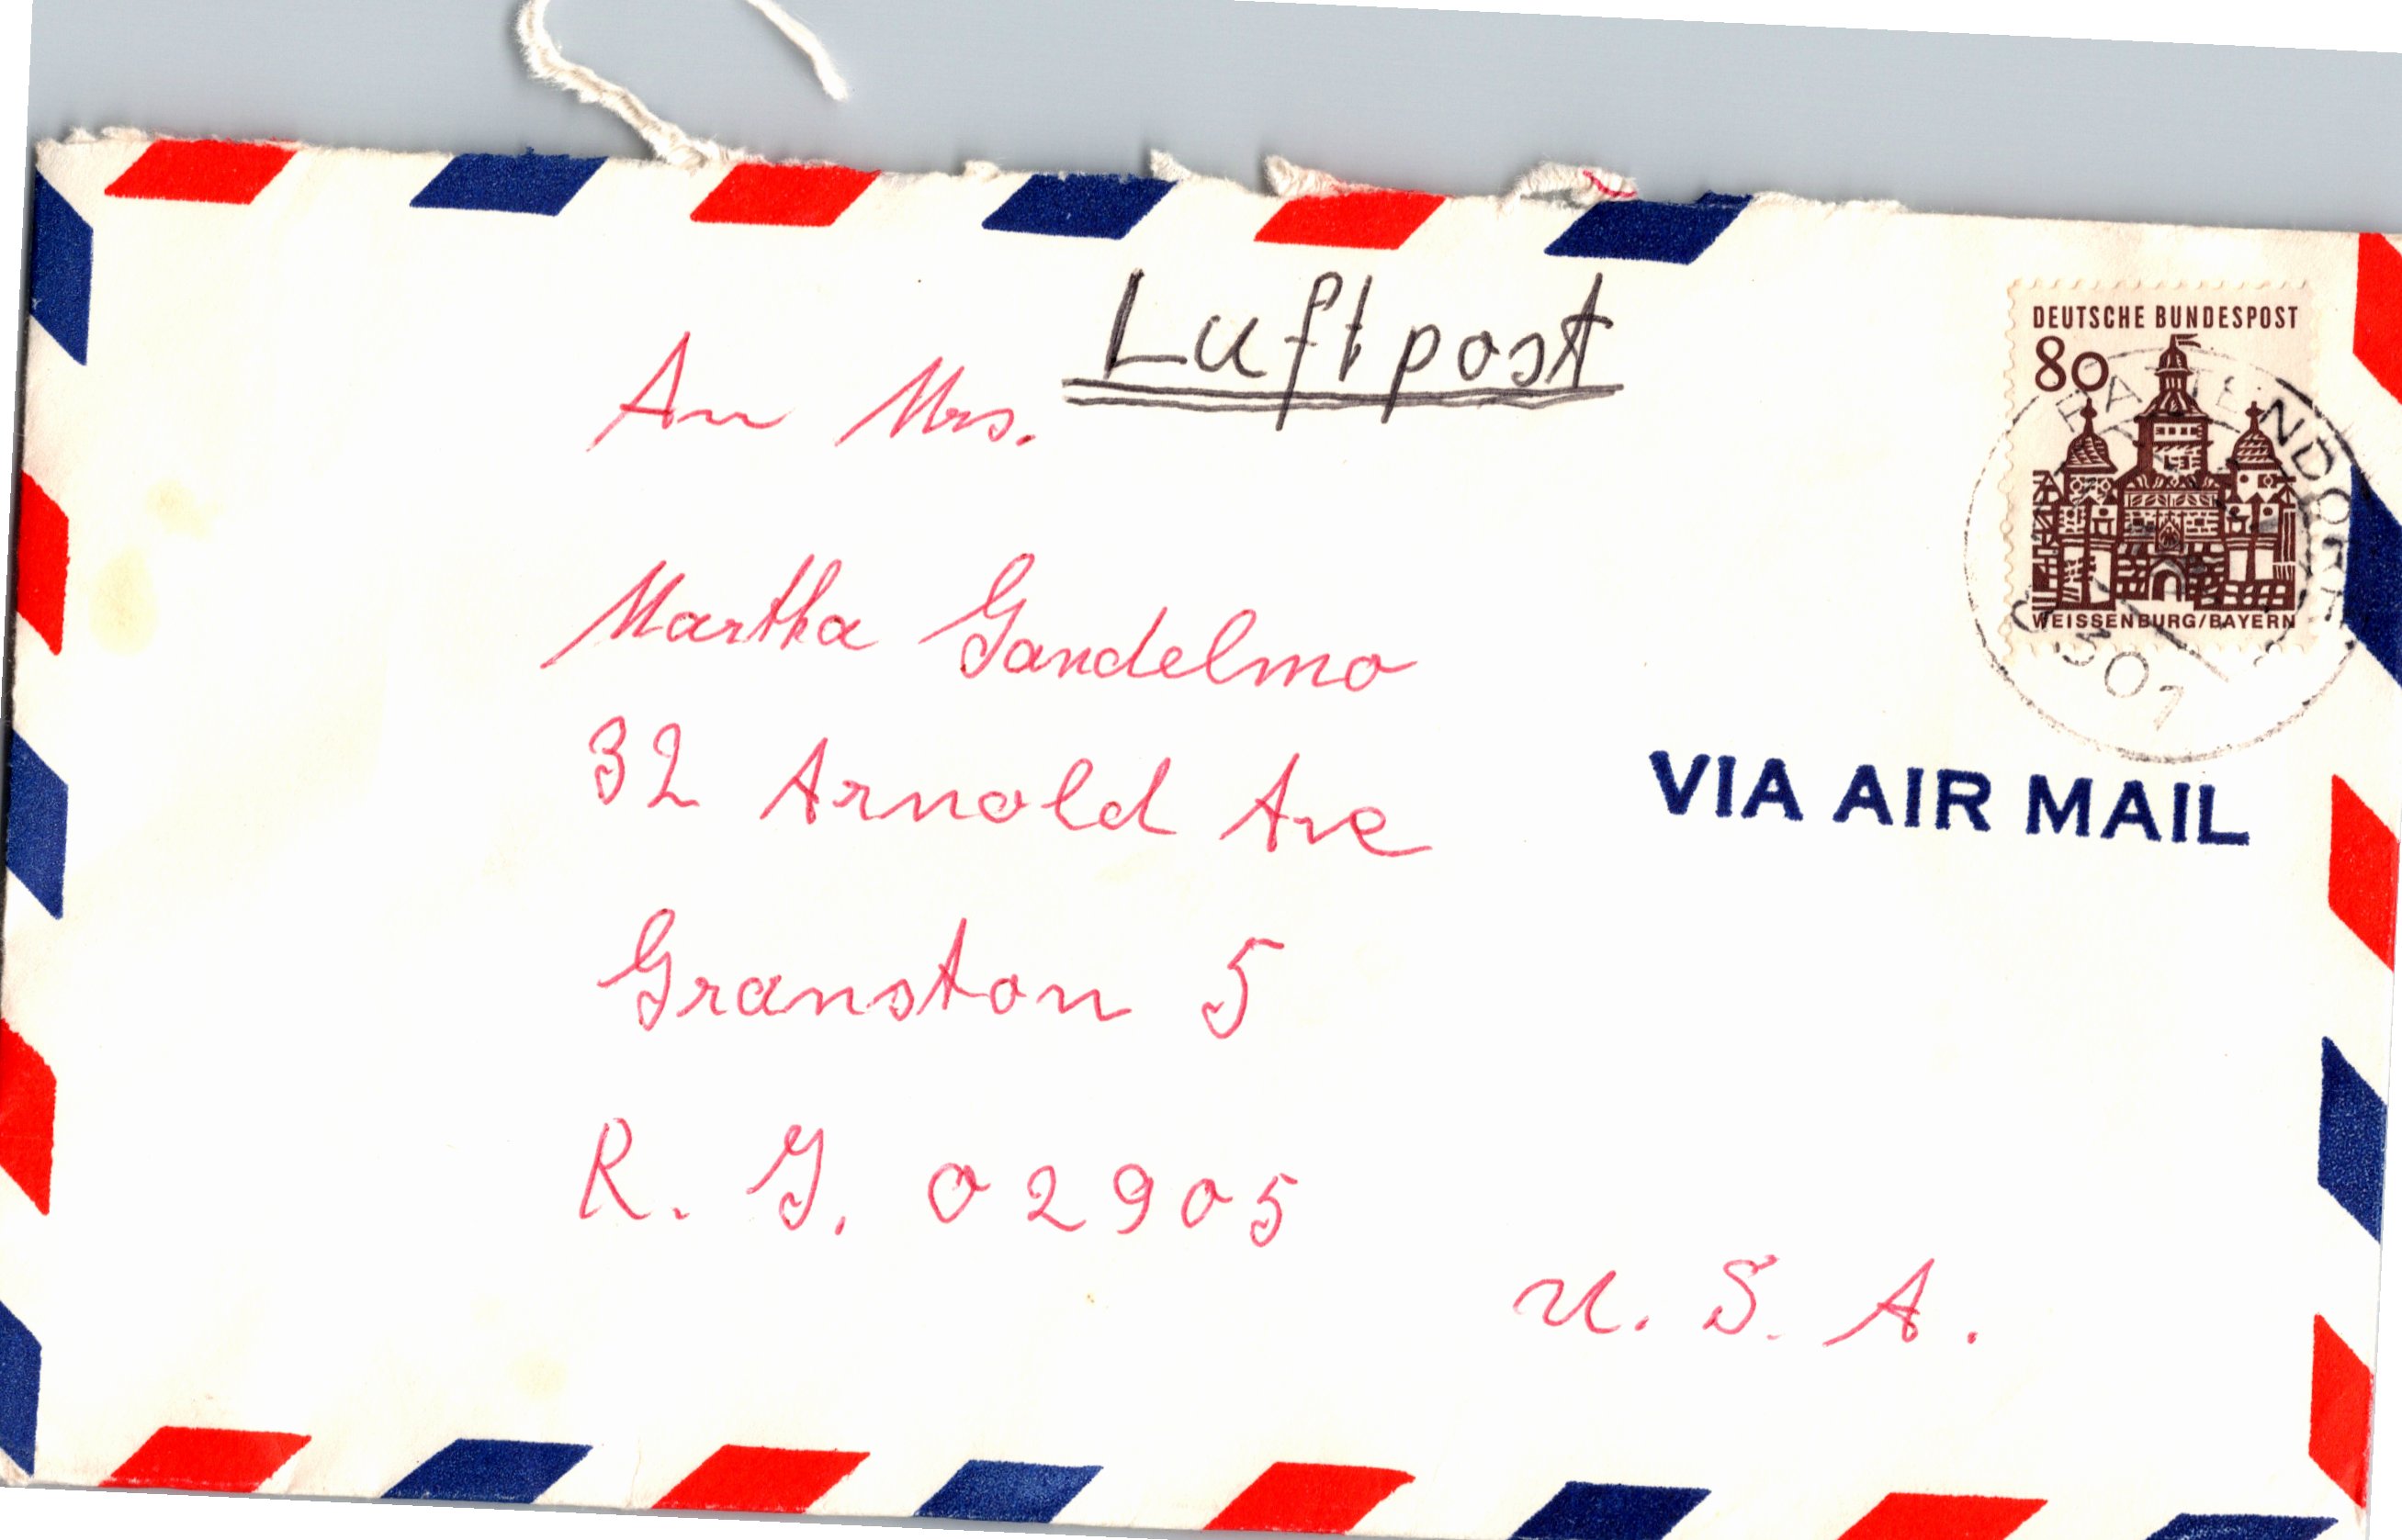 Luftpost
An Mrs.
Martha Gandelmo
32 Arnold Ave
Granston 5
R. I. 02905
U. S. A.
DEUTSCHE BUNDESPOST
80
WEISSENBURG/BAYERN
VIA AIR MAIL